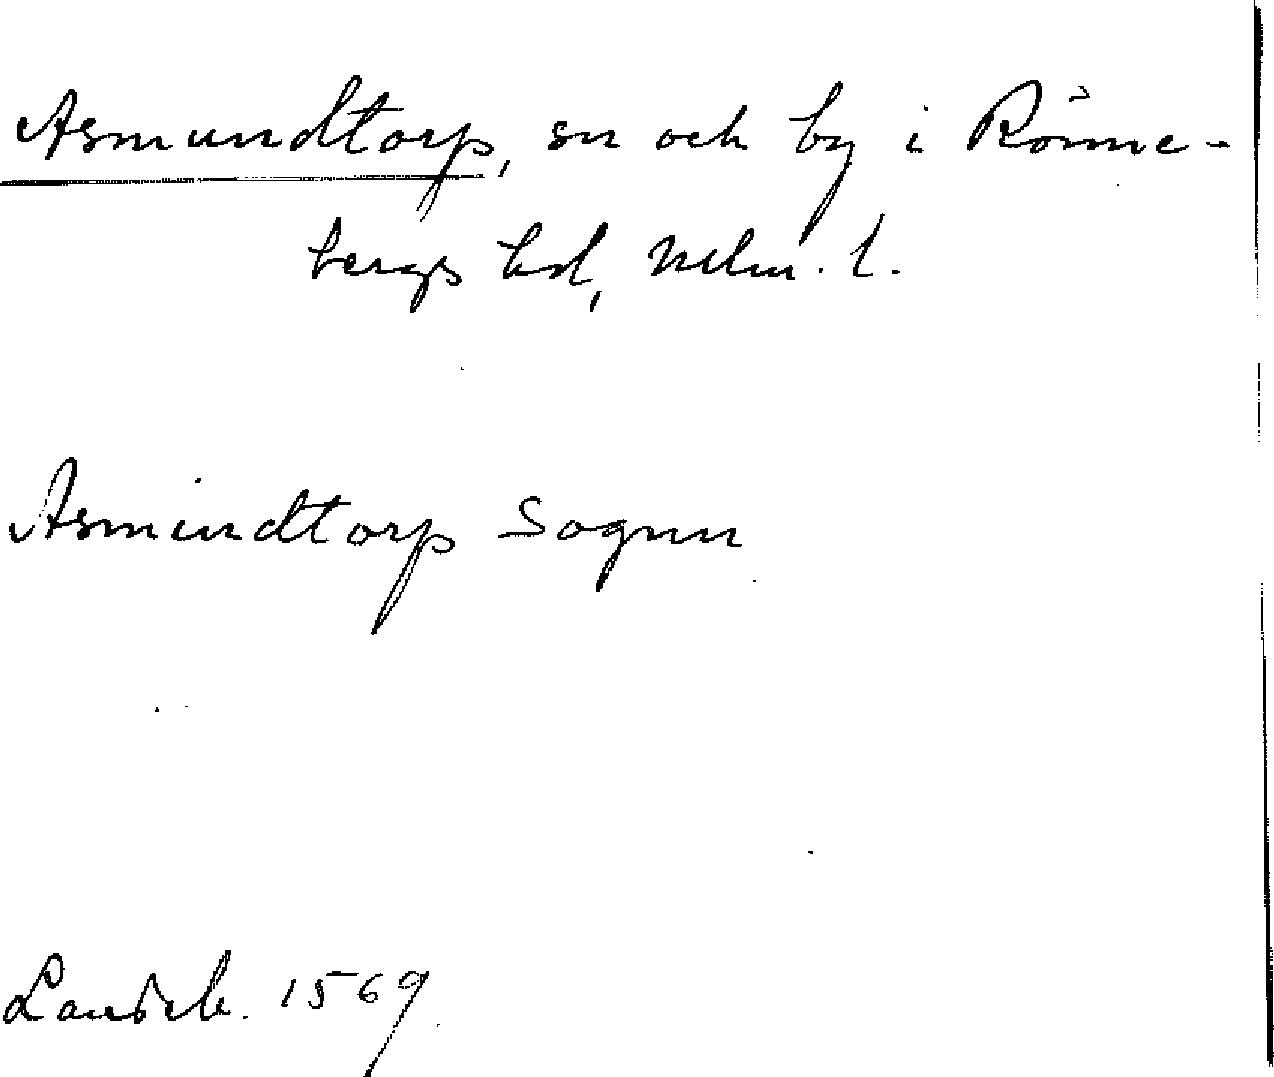 Asmundtorp, sn och by i Rönne-
bergs hd, Mlm. l.
Asmindtorp Sognn
Landeb. 1569